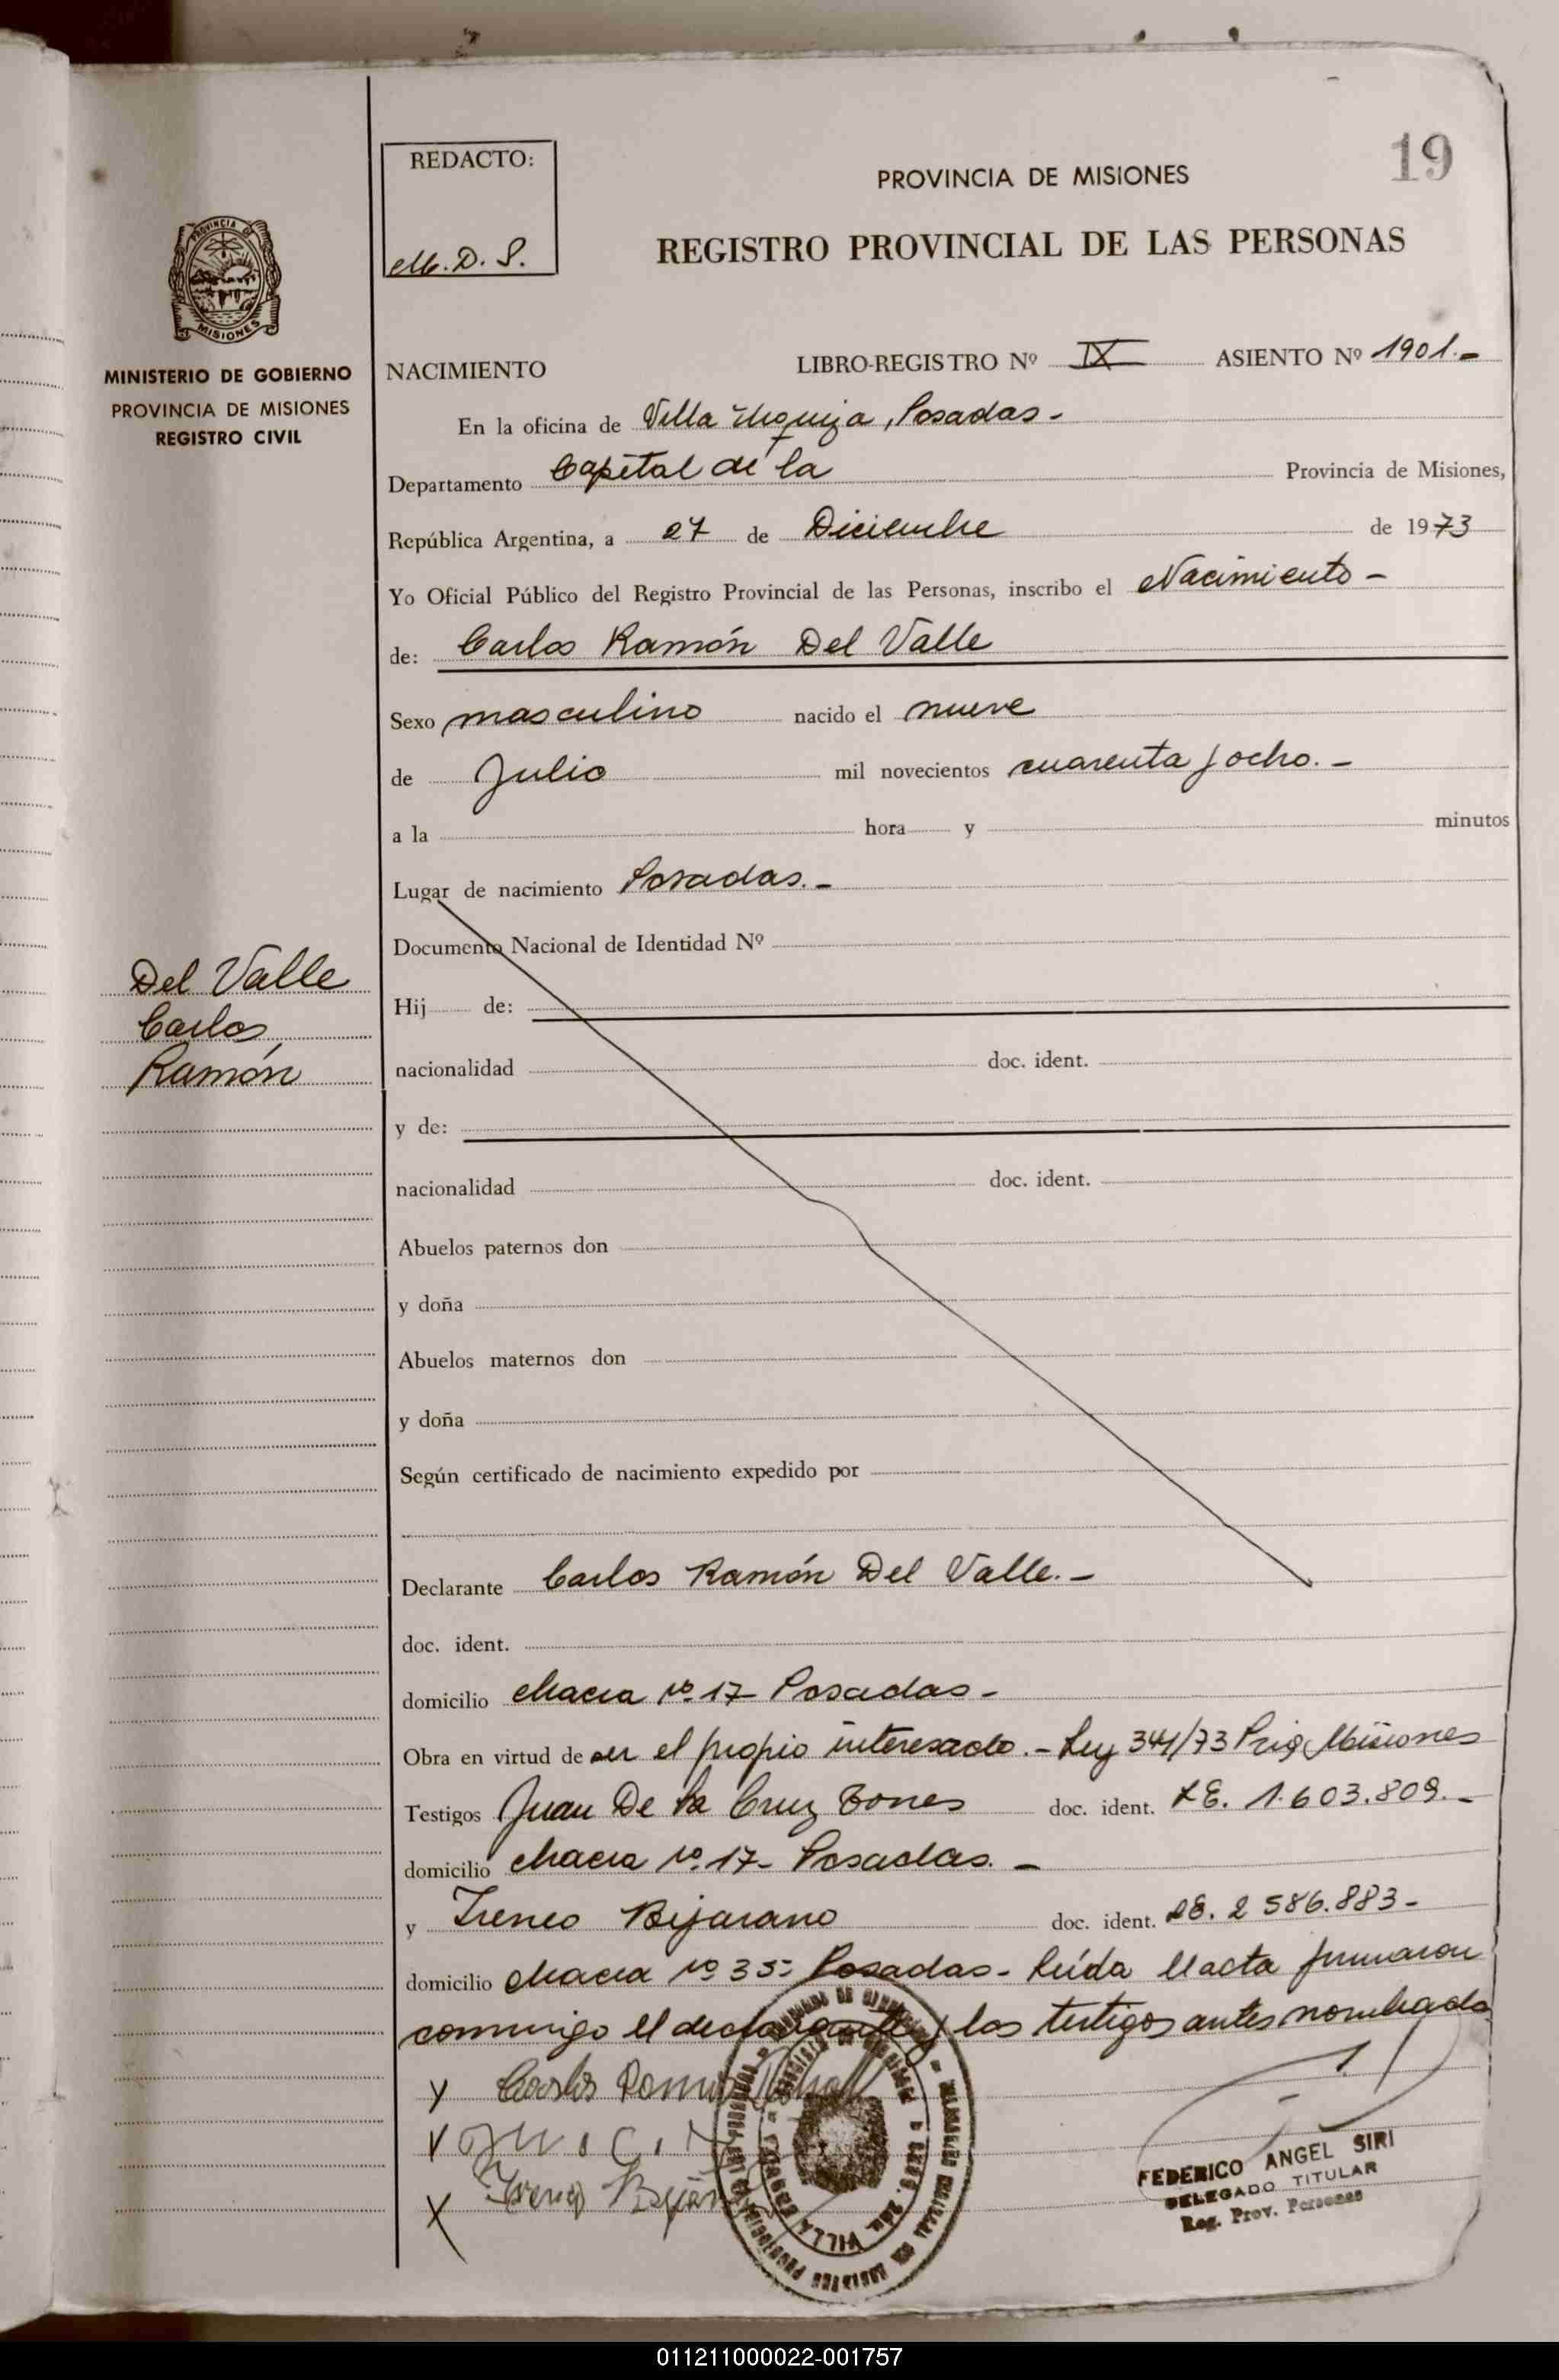 19
REDACTO:
M. D. S.
PROVINCIA DE MISIONES
REGISTRO PROVINCIAL DE LAS PERSONAS
PROVINCIA DE
MISIONES
MINISTERIO DE GOBIERNO
PROVINCIA DE MISIONES
REGISTRO CIVIL
NACIMIENTO LIBRO-REGISTRO Nº IX ASIENTO Nº 1901.-
En la oficina de Villa Urquiza, Posadas-
Departamento Capital de la Provincia de Misiones,
República Argentina, a 27 de Diciembre de 1973
Yo Oficial Público del Registro Provincial de las Personas, inscribo el Nacimiento-
de: Carlos Ramón Del Valle
Sexo masculino nacido el nueve
de Julio mil novecientos cuarenta y ocho.-
a la hora y minutos
Lugar de nacimiento Posadas.-
Documento Nacional de Identidad Nº
Del Valle
Carlos
Ramón
Hij de:
nacionalidad doc. ident.
y de:
nacionalidad doc. ident.
Abuelos paternos don
y doña
Abuelos maternos don
y doña
Según certificado de nacimiento expedido por
Declarante Carlos Ramón Del Valle.-
doc. ident.
domicilio chacra nº 17- Posadas-
Obra en virtud de ser el propio interesado.- Ley 341/73 Misiones
Testigos Juan De la Cruz Torres doc. ident. LE. 1.603.809.-
domicilio chacra nº 17- Posadas.-
y Ireneo Bijarano doc. ident. LE. 2 586.883-
domicilio chacra nº 35- Posadas- Leída el acta firmaron
conmigo el declarante y los testigos antes nombrados
Carlos Ramon
Ireneo
VILLA
FEDERICO ANGEL SIRI
DELEGADO TITULAR
Reg. Prov. Personas
011211000022-001757